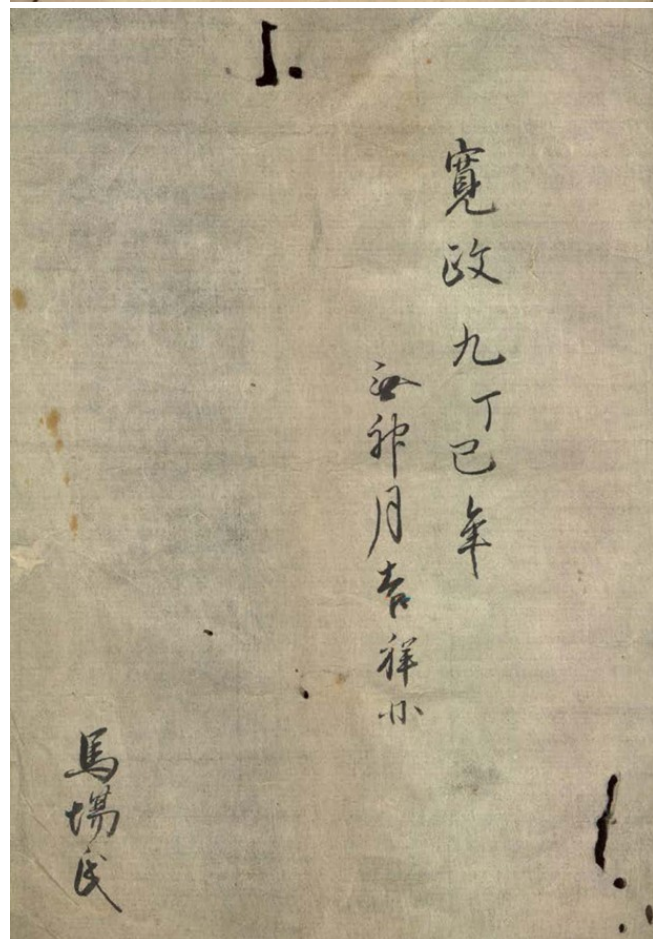 寛政九丁巳年
無神月吉祥日
馬塲氏